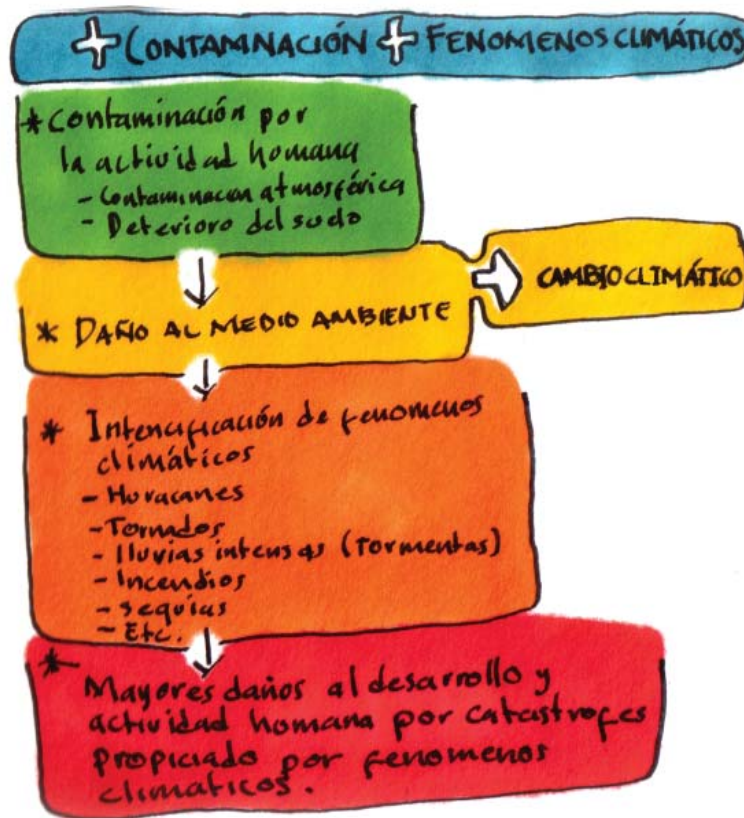 + CONTAMINACIÓN + FENOMENOS CLIMÁTICOS
* Contaminación por
la actividad homana
- Contaminacion atmosférica
- Deterioro del suelo
* DAÑO AL MEDIO AMBIENTE
CAMBIO CLIMÁTICO
* Intencificación de fenomenos
climáticos
- Huracanes
- Tornados
- lluvias intensas (Tormentas)
- Incendios
- sequias
- Etc.
* Mayores daños al desarrollo y
actividad homana por catastrofes
propiciado por fenomenos
climaticos.